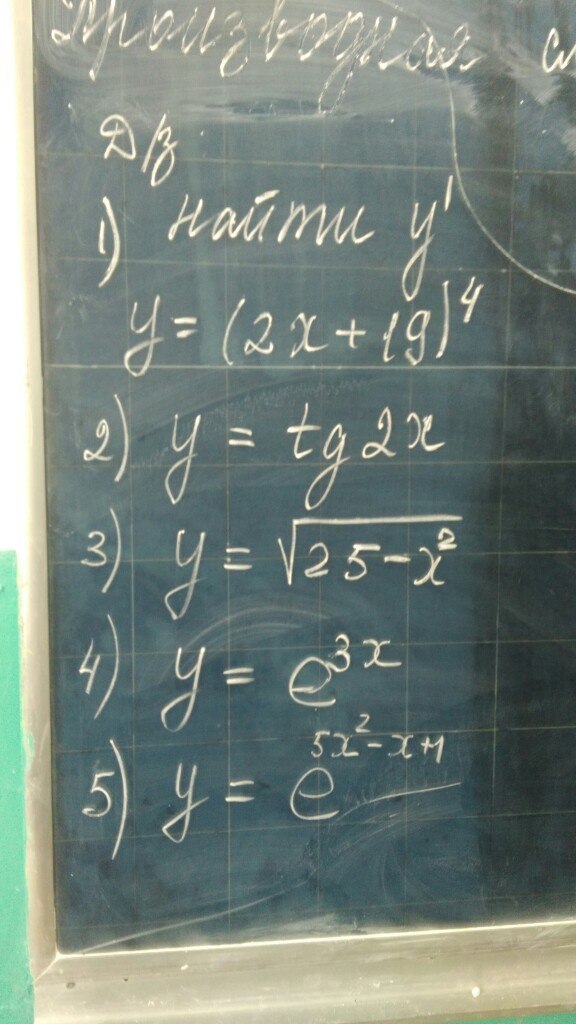 Производная
Д/з.
1) найти y'
y = (2x + 19)⁴
2) y = tg2x
3) y = √25-x²
4) y = e³ˣ
5) y = e^5x²-x+1